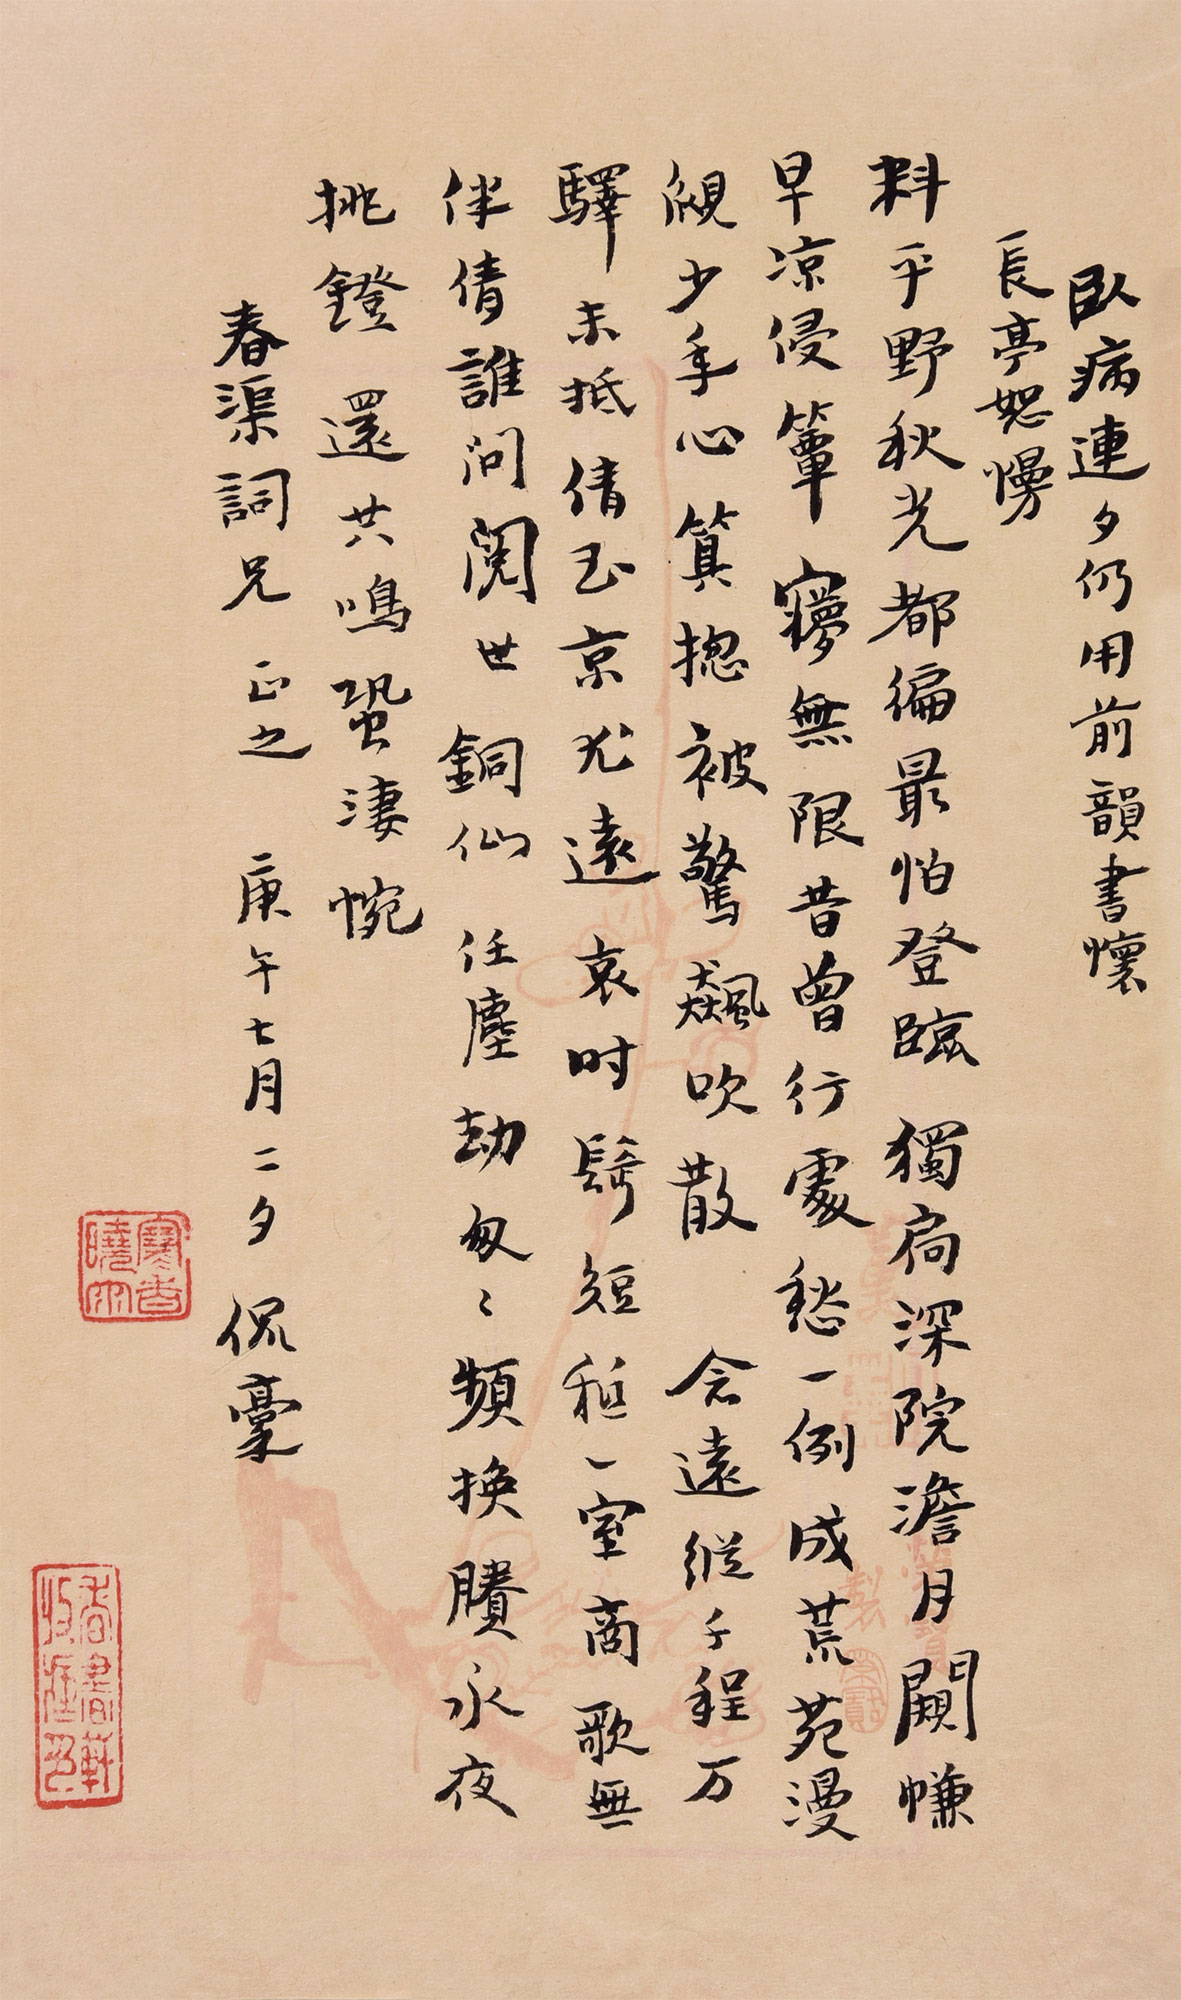 臥病連夕仍用前韻書懷
長亭怨慢
料平野秋光都徧最怕登臨獨扃深院澹月闚㡘
早凉侵簟寱無限昔曾行處愁一例成荒苑漫
覛少年心算揔被驚飆吹散念遠縱千程万
驛未抵倩玉京尤遠哀时髩短秪一室商歌無
伴倩誰问閱世銅仙任塵劫匆〻頻换賸永夜
挑鐙還共鳴蛩淒惋
春渠詞兄正之庚午七月二夕侃毫
寒香曉雨